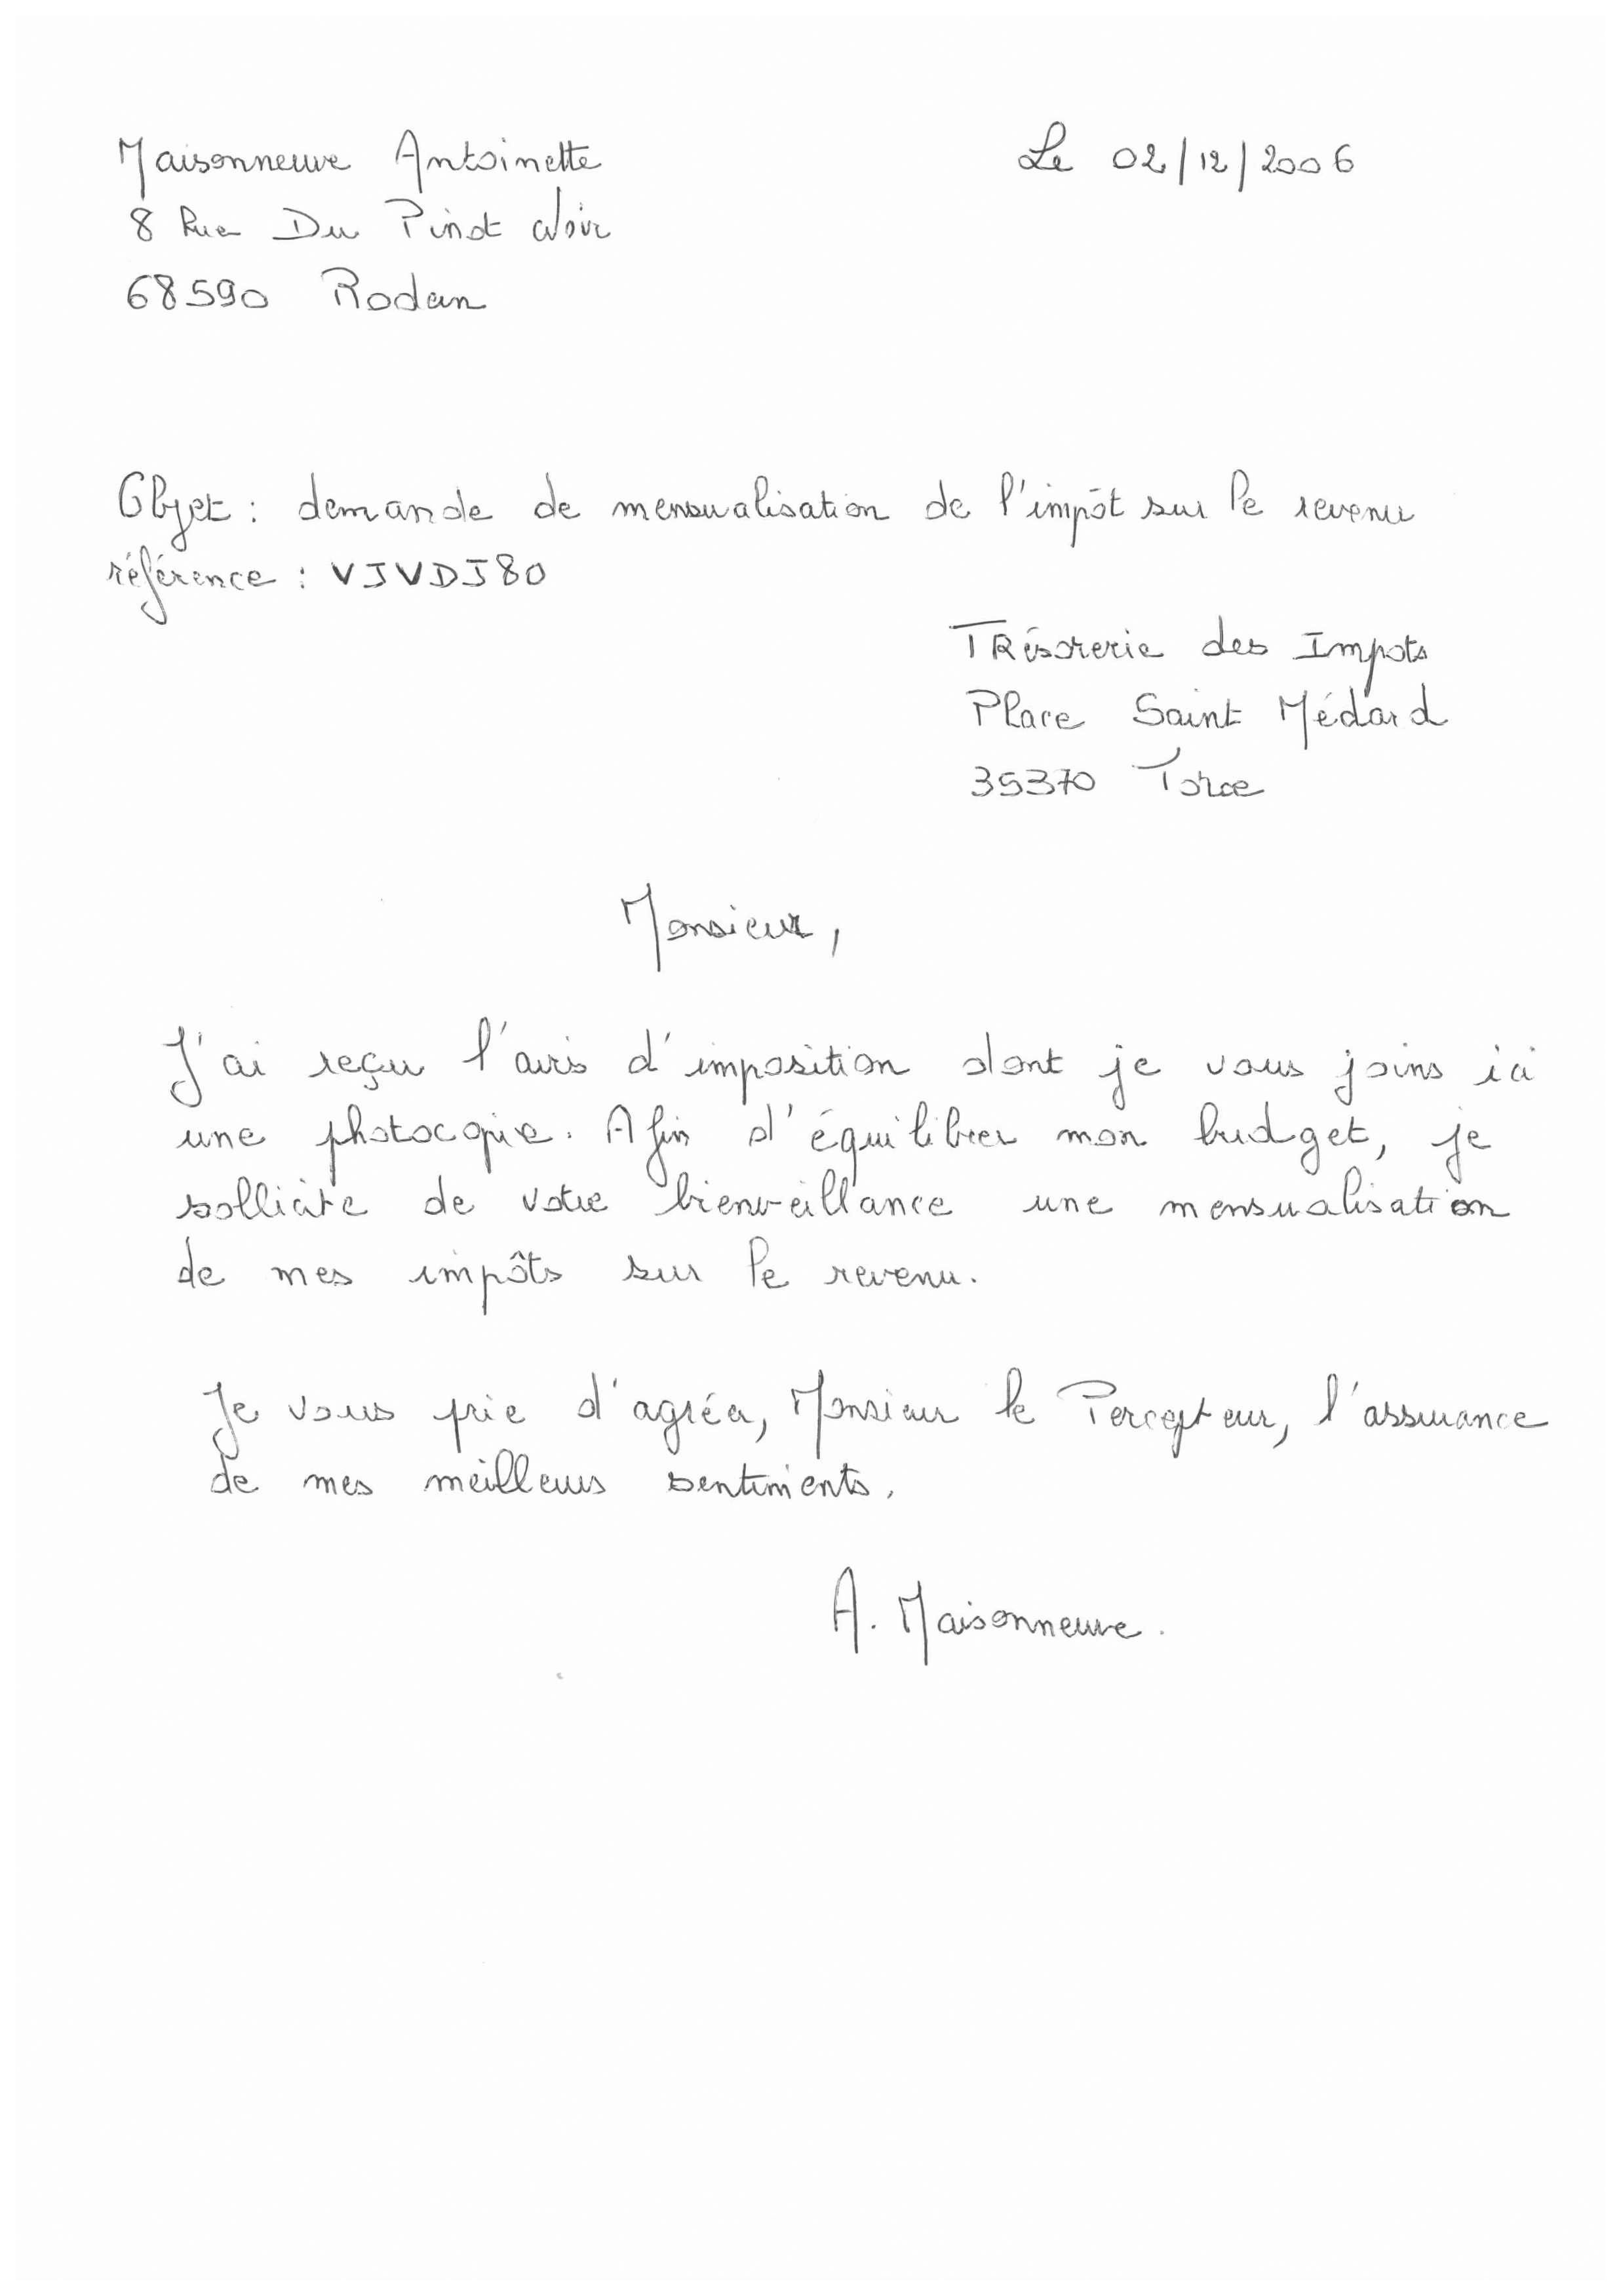 Maisonneuve Antoinette
Le 02/12/2006
8 Rue Du Pinot Noir
68590 Rodern
Objet : demande de mensualisation de l'impôt sur le revenu
référence : VJVDJ80
TRésorerie des Impots
Place Saint Médard
35370 Torce
Monsieur,
J'ai reçu l'avis d'imposition dont je vous joins ici
une photocopie. Afin d'équilibrer mon budget, je
sollicite de votre bienveillance une mensualisation
de mes impôts sur le revenu.
Je vous prie d'agréer, Monsieur le Percepteur, l'assurance
de mes meilleurs sentiments.
A. Maisonneuve.